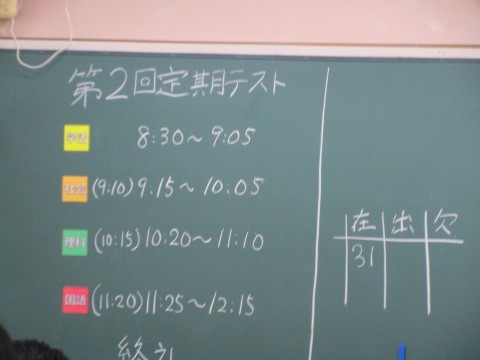 第2回定期テスト
学活 8:30～9:05
社会 (9:10) 9.15～10.05
理科 (10:15) 10:20～11:10
国語 (11:20) 11:25～12:15
在 出 欠
31